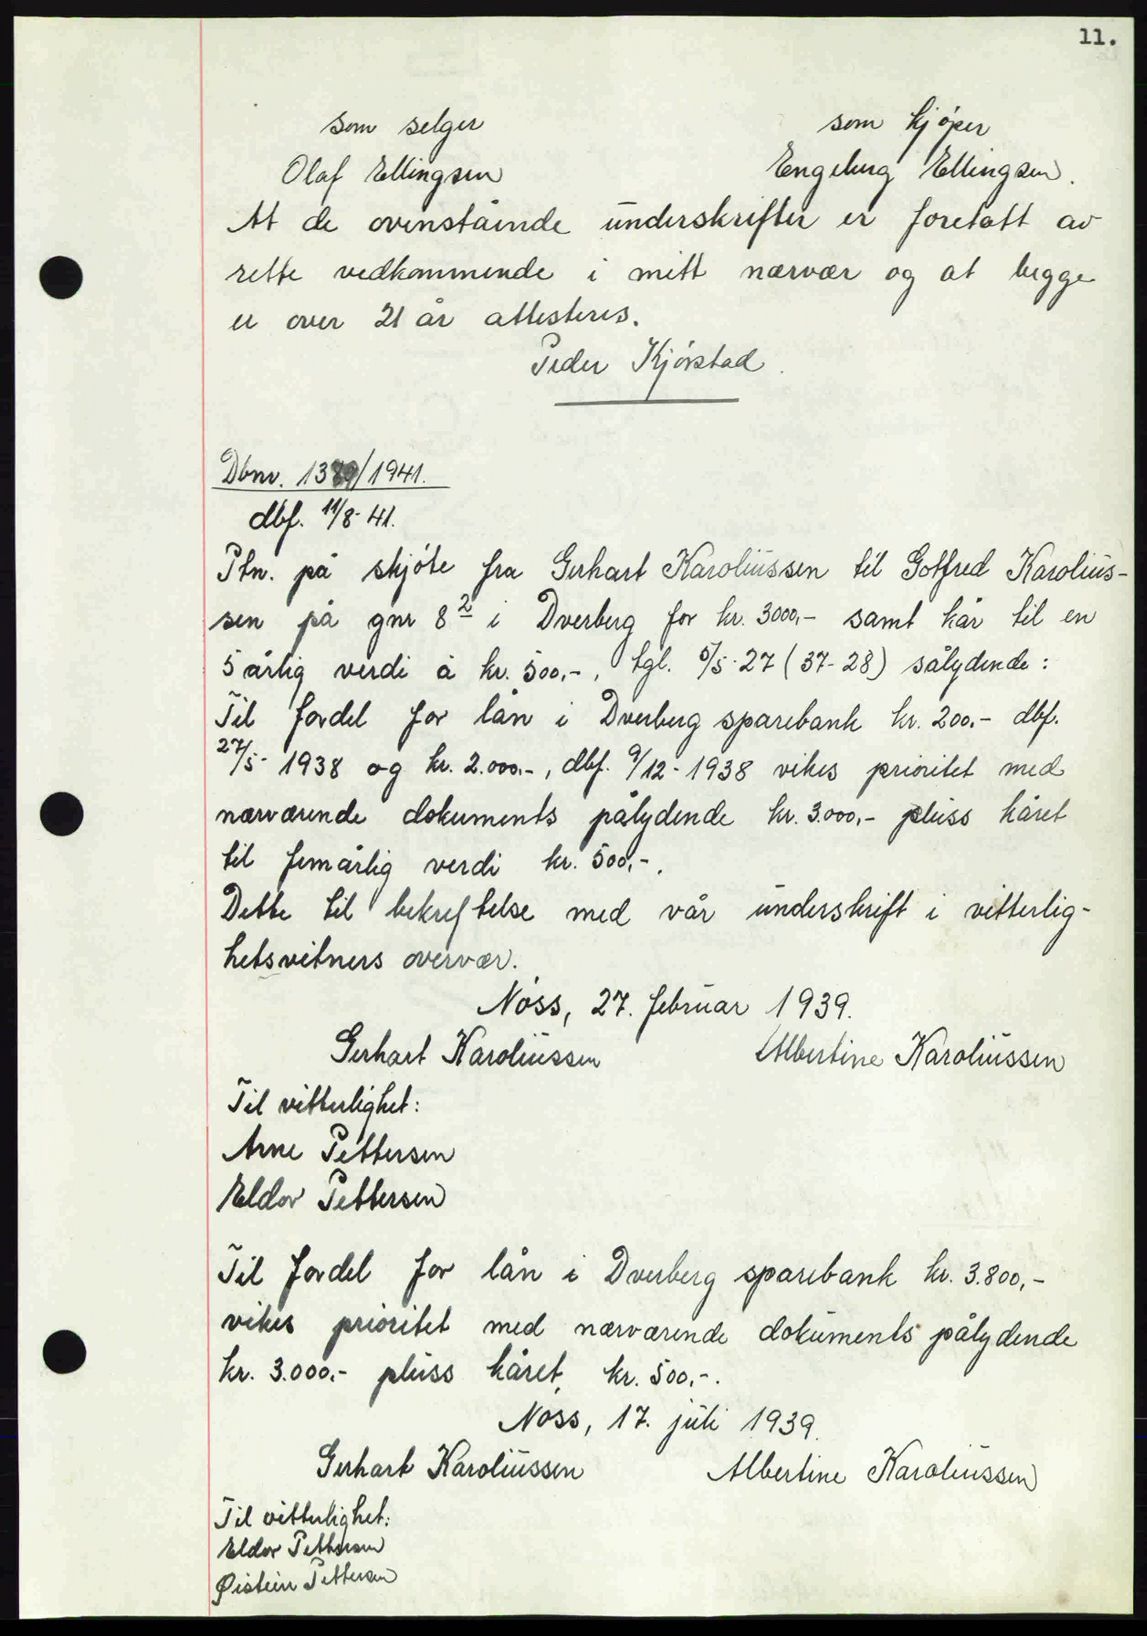 11.
som selger som kjøper
Olaf Ellingsen Engeburg Ellingsen.
At de ovenstående underskrifter er foretatt av
rette vedkommende i mitt nærvær og at begge
er over 21 år attesteres.
Peder Kjørstad.
Dbnr. 1389/1941.
dbf. 11/8-41.
Ptn. på skjøte fra Gerhart Karoliussen til Gotfred Karolius-
sen på gnr 8² i Dverberg for kr. 3000,- samt kår til en
5 årlig verdi à kr. 500,-, tgl. 6/5-27 (37-28) sålydende:
Til fordel for lån i Dverberg sparebank kr. 200.- dbf.
27/5-1938 og kr. 2.000.-, dbf. 9/12-1938 vikes prioritet med
nærværende dokuments pålydende kr. 3.000,- pluss kåret
til femårlig verdi kr. 500,-.
Dette til bekreftelse med vår underskrift i vitterlig-
hetsvitners overvær.
Nøss, 27. februar 1939.
Gerhart Karoliussen Albertine Karoliussen
Til vitterlighet:
Arne Pettersen
Eldor Pettersen
Til fordel for lån i Dverberg sparebank kr. 3.800,-
vikes prioritet med nærværende dokuments pålydende
kr. 3.000.- pluss kåret, kr. 500,-.
Nøss, 17. juli 1939.
Gerhart Karoliussen Albertine Karoliussen
Til vitterlighet:
Eldor Pettersen
Øistein Pettersen